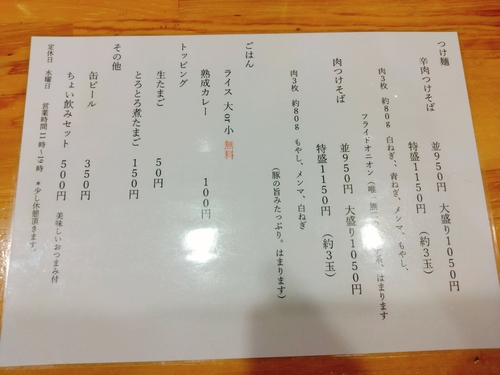 つけ麺
辛肉つけそば 並950円 大盛り1050円
特盛1150円 (約3玉)
肉3枚 約80g 白ねぎ、青ねぎ、メンマ、もやし、
フライドオニオン(唯一無二 はまります
肉つけそば 並950円 大盛り1050円
特盛1150円 (約3玉)
肉3枚 約80g もやし、メンマ、白ねぎ
(豚の旨みたっぷり。はまります)
ごはん
ライス 大or小 無料
熟成カレー 100円
トッピング
生たまご 50円
とろとろ煮たまご 150円
その他
缶ビール 350円
ちょい飲みセット 500円 美味しいおつまみ付
定休日 水曜日 営業時間11時~19時 *少し休憩頂きます。